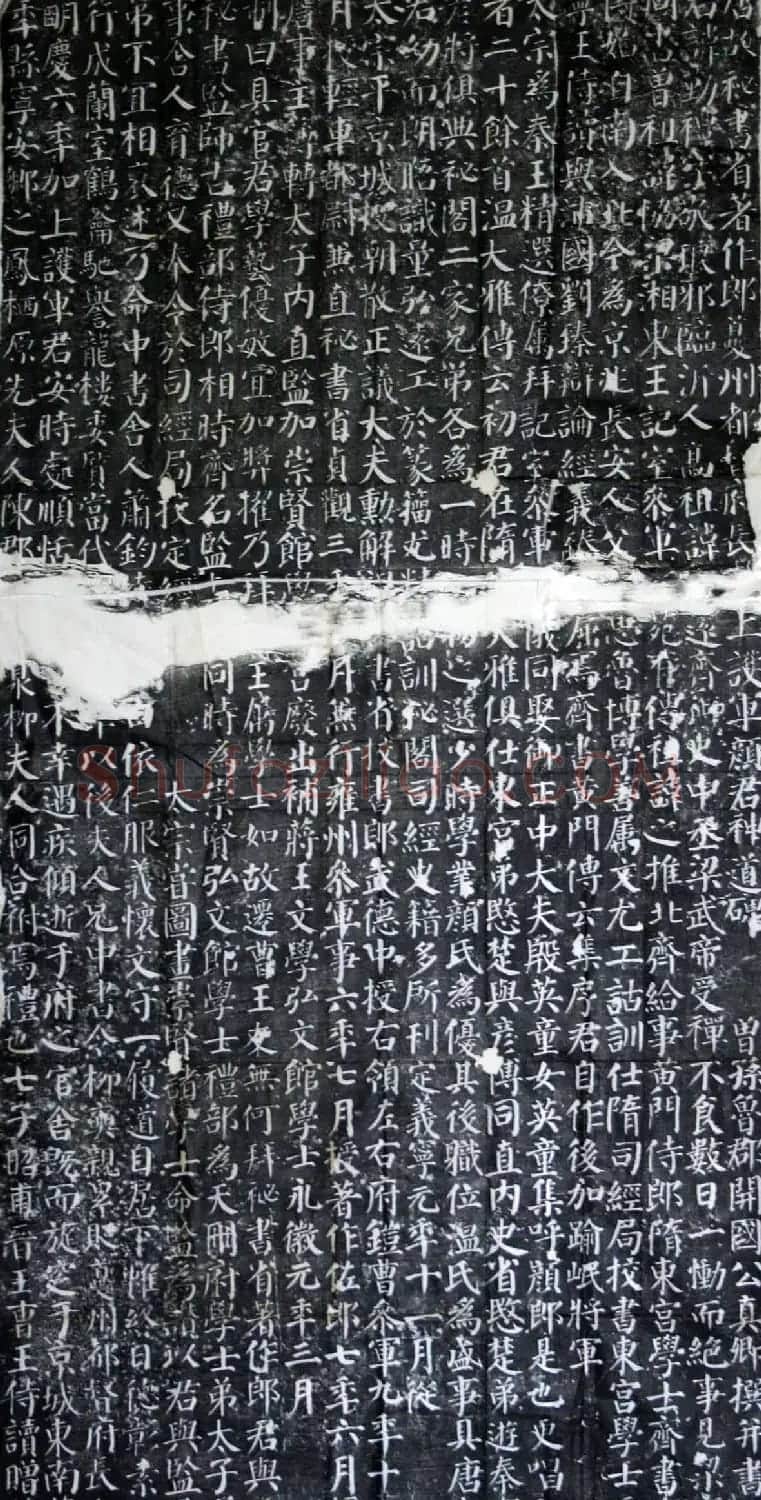 唐故秘書省著作郎夔州都督府長上護軍顏君神道碑 曾孫魯郡開國公真卿撰并書
君諱勤禮字敬琅邪臨沂人高祖諱遠齊御史中丞梁武帝受禪不食數日一慟而絕事見梁
周書曾祖諱協梁湘東王記室參軍苑有傳祖諱之推北齊給事黃門侍郎隋東宮學士齊書
傳始自南入北今為京兆長安人父思魯博學善屬文尤工詁訓仕隋司經局校書東宮學士
寧王侍讀與沛國劉臻辯論經義臻屈焉齊書黃門傳云集序君自作後加踰岷將軍
太宗為秦王精選僚屬拜記室參軍儀同娶御正中大夫殷英童女英童集呼顏郎是也更唱
者二十餘首溫大雅傳云初君在隋大雅俱仕東宮弟愍楚與彥博同直內史省愍楚弟遊秦
彥將俱典祕閣二家兄弟各為一時物之選少時學業顏氏為優其後職位溫氏為盛事具唐
君幼而朗晤識量弘遠工於篆籀尤精詁訓祕閣司經史籍多所刊定義寧元年十一月從
太宗平京城授朝散正議大夫勳解書省校書郎武德中授右領左右府鎧曹參軍九年十
月授輕車都尉兼直祕書省貞觀三月兼行雍州參軍事六年七月授著作佐郎七年六月
詹事主簿轉太子內直監加崇賢館宮廢出補蔣王文學弘文館學士永徽元年三月
制曰具官君學藝優敏宜加獎擢乃拜王屬學士如故遷曹王友無何拜祕書省著作郎君與
秘書監師古禮部侍郎相時齊名監同時為崇賢弘文館學士禮部為天冊府學士弟太子
事舍人育德又奉令於司經局校定太宗嘗圖畫崇賢諸學士命監為讚以君與監
弟不宜相褒述乃命中書舍人蕭鈞曰依仁服義懷文守一履道自居下帷終日德彰素
行成蘭室鶴籥馳譽龍樓委質當代年以後夫人兄中書令柳奭親累貶夔州都督府長
明慶六年加上護軍君安時處順恬不幸遇疾傾逝于府之官舍既而旋窆于京城東南
年縣寧安鄉之鳳栖原先夫人陳郡泉柳夫人同合祔焉禮也七子昭甫晉王曹王侍讀贈
Shufaziliao.COM